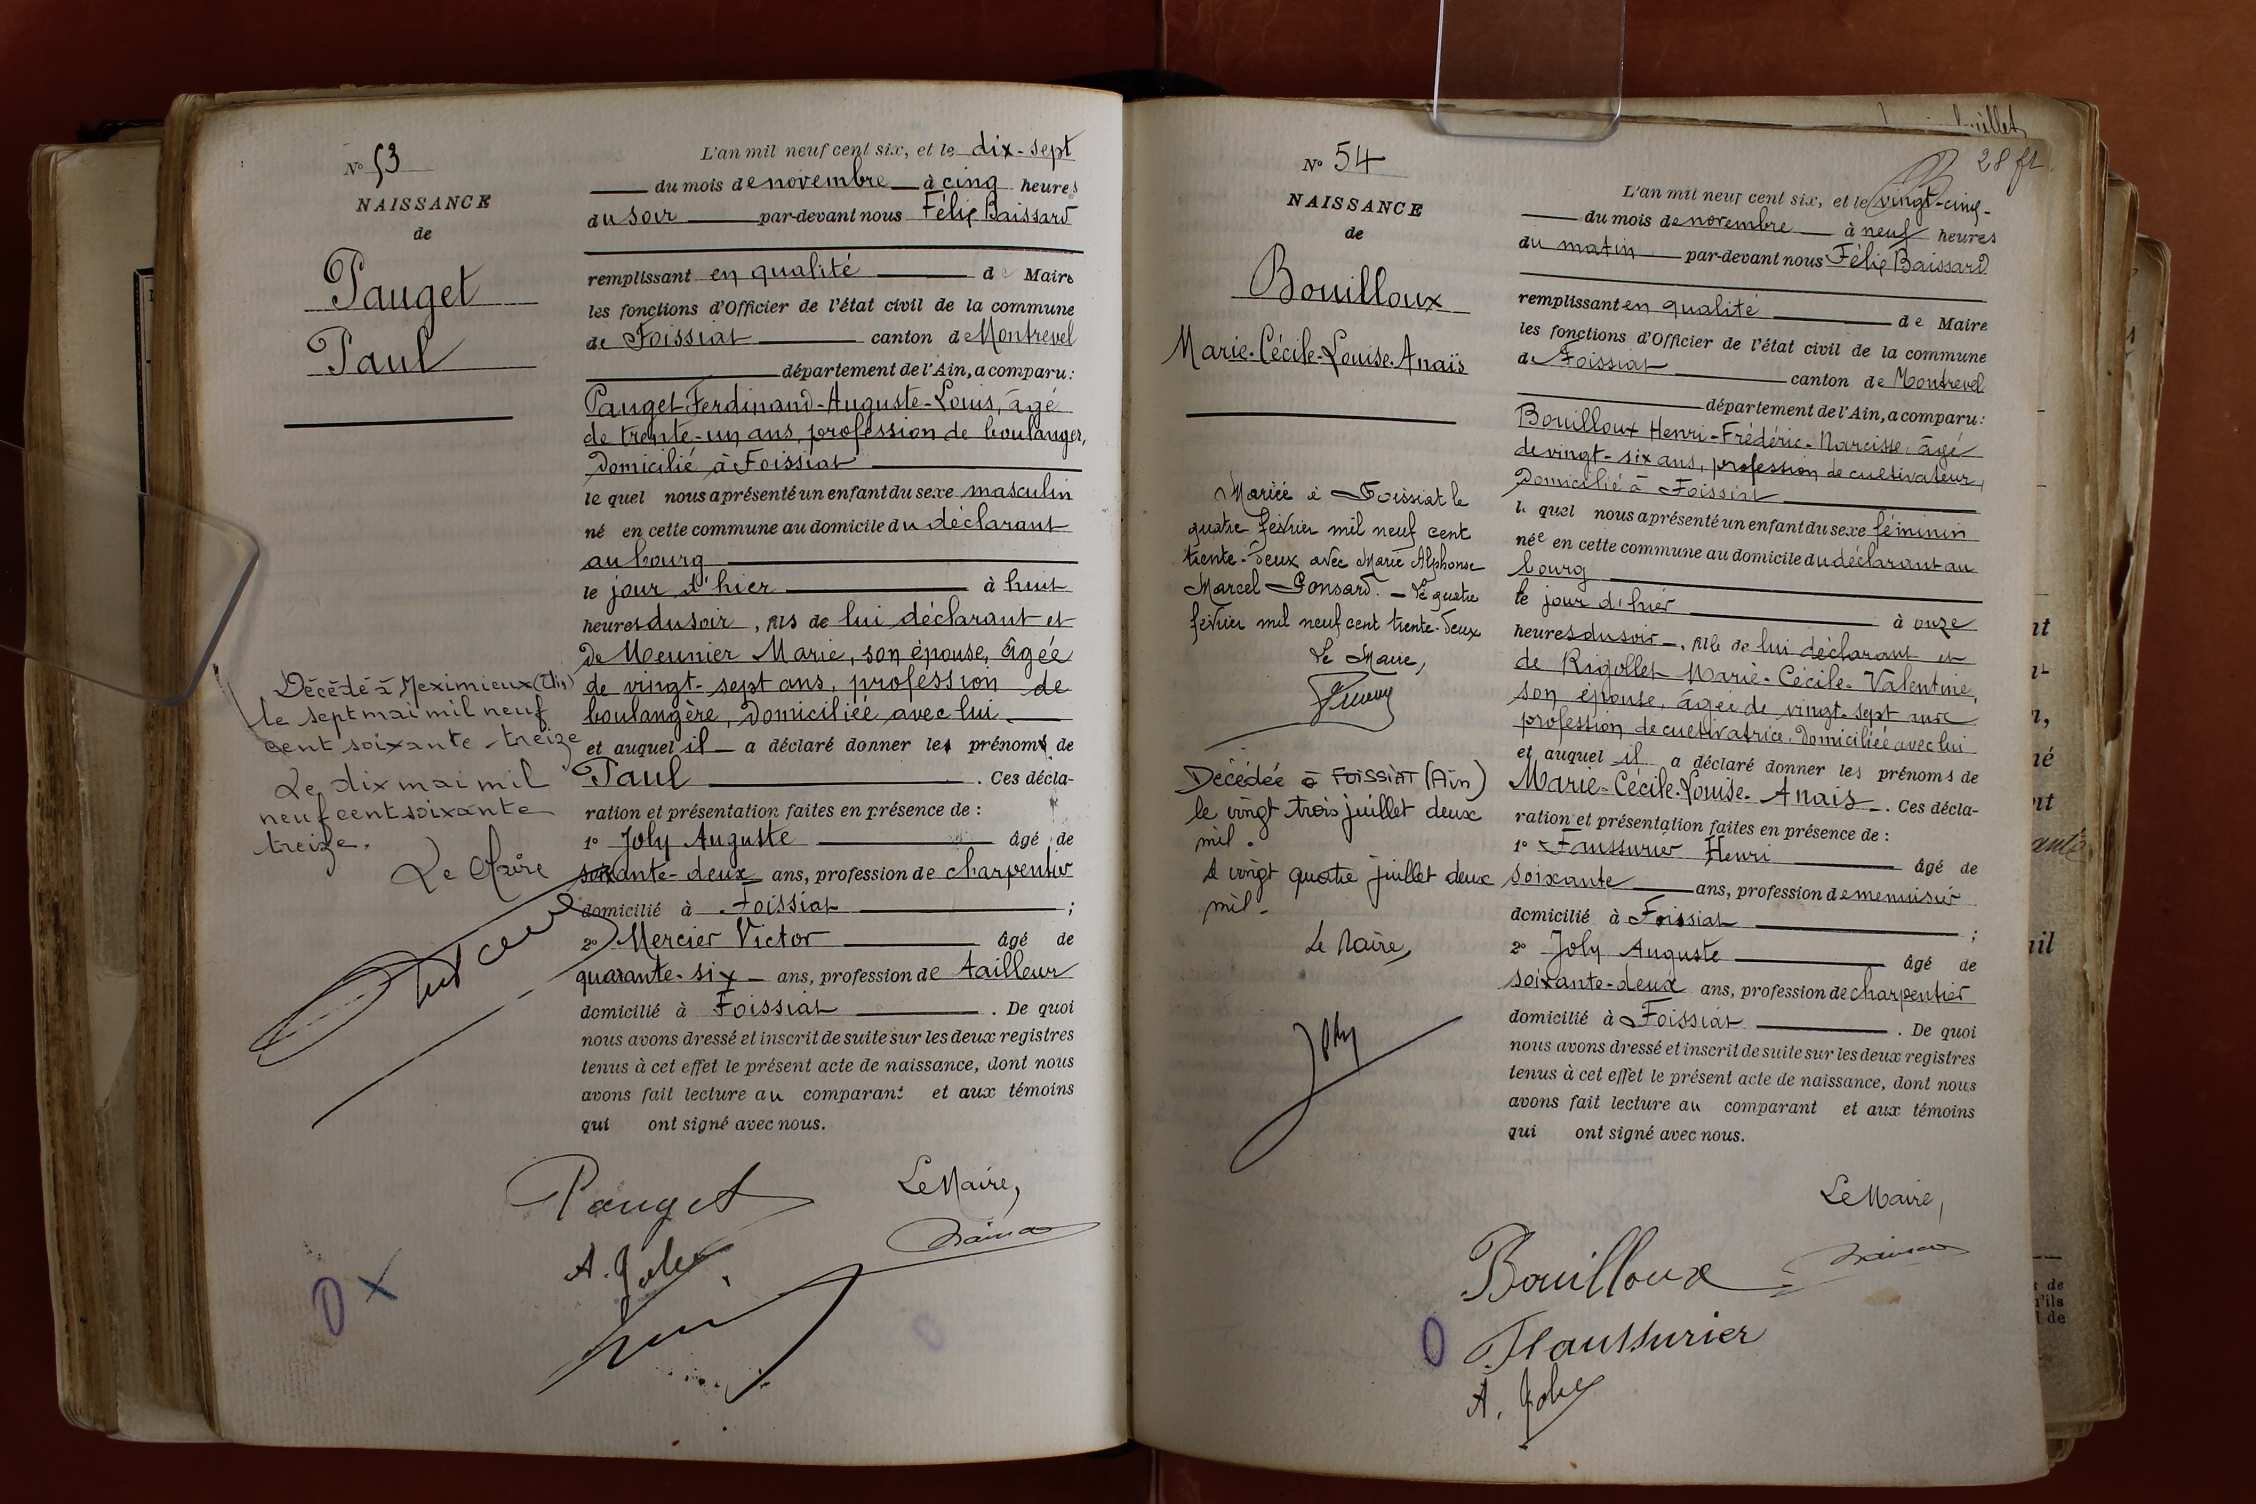 N° 53
NAISSANCE
de
Pauget
Paul
Décédé à Meximieux (Ain)
le sept mai mil neuf
cent soixante-treize
Le dix mai mil
neuf cent soixante
treize.
Le Maire
L'an mil neuf cent six, et le dix-sept
du mois de novembre à cinq heures
du soir par-devant nous Félix Baissard
remplissant en qualité de Maire
les fonctions d'Officier de l'état civil de la commune
de Foissiat canton de Montrevel
département de l'Ain, a comparu:
Pauget Ferdinand-Auguste-Louis, âgé
de trente-un ans, profession de boulanger,
domicilié à Foissiat
le quel nous a présenté un enfant du sexe masculin
né en cette commune au domicile du déclarant
au bourg
le jour d'hier à huit
heures du soir, fils de lui déclarant et
de Meunier Marie, son épouse, âgée
de vingt-sept ans, profession de
boulangère, domiciliée avec lui.
et auquel il a déclaré donner les prénoms de
Paul. Ces décla-
ration et présentation faites en présence de :
1° Joly Auguste âgé de
soixante-deux ans, profession de charpentier
domicilié à Foissiat ;
2° Mercier Victor âgé de
quarante-six ans, profession de tailleur
domicilié à Foissiat. De quoi
nous avons dressé et inscrit de suite sur les deux registres
tenus à cet effet le présent acte de naissance, dont nous
avons fait lecture au comparant et aux témoins
qui ont signé avec nous.
Pauget
Le Maire,
A. Joly
N° 54
NAISSANCE
de
Bouilloux
Marie-Cécile-Louise-Anaïs
Mariée à Foissiat le
quatre février mil neuf cent
trente-deux avec Marie Alphonse
Marcel Gonsard. - Le quatre
février mil neuf cent trente-deux
Le Maire,
Décédée à FOISSIAT (Ain)
le vingt trois juillet deux
mil.
Le vingt quatre juillet deux
mil.
Le Maire,
Joly
28 ft
L'an mil neuf cent six, et le vingt-cinq
du mois de novembre à neuf heures
du matin par-devant nous Félix Baissard
remplissant en qualité de Maire
les fonctions d'Officier de l'état civil de la commune
de Foissiat canton de Montrevel
département de l'Ain, a comparu:
Bouilloux Henri-Frédéric-Narcisse, âgé
de vingt-six ans, profession de cultivateur,
domicilié à Foissiat
le quel nous a présenté un enfant du sexe féminin
née en cette commune au domicile du déclarant au
bourg
le jour d'hier à onze
heures du soir, fille de lui déclarant et
de Rigollet Marie-Cécile-Valentine,
son épouse, âgée de vingt-sept ans
profession de cultivatrice, domiciliée avec lui
et auquel il a déclaré donner les prénoms de
Marie-Cécile-Louise-Anaïs. Ces décla-
ration et présentation faites en présence de :
1° Faussurier Henri âgé de
soixante ans, profession de menuisier
domicilié à Foissiat ;
2° Joly Auguste âgé de
soixante-deux ans, profession de charpentier
domicilié à Foissiat. De quoi
nous avons dressé et inscrit de suite sur les deux registres
tenus à cet effet le présent acte de naissance, dont nous
avons fait lecture au comparant et aux témoins
qui ont signé avec nous.
Le Maire,
Bouilloux
Faussurier
A. Joly